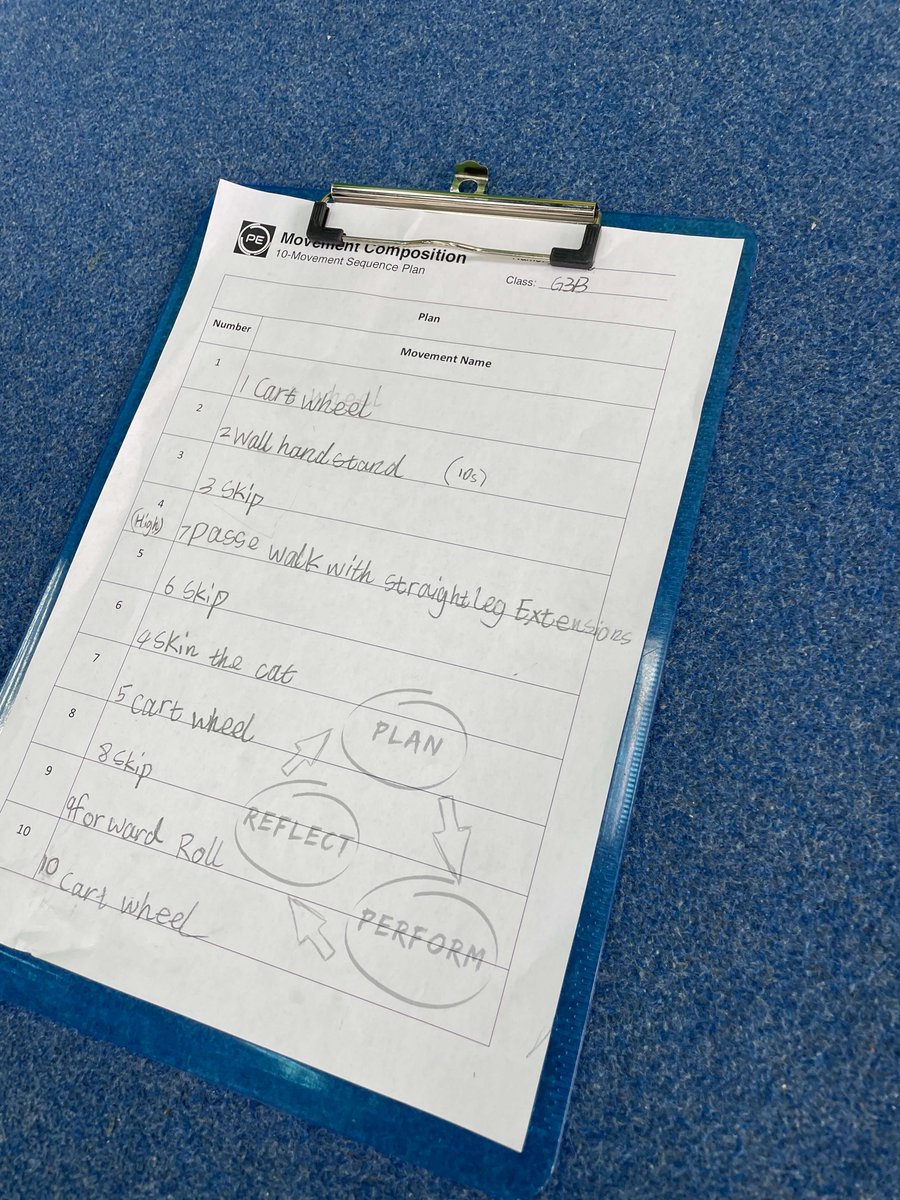 PE
Movement Composition
10-Movement Sequence Plan
Class: G3B
Plan
Number
Movement Name
1
1 Cart wheel
2
2 Wall hand stand (10s)
3
3 Skip
4
(High)
7 Passe walk with straight leg Extensions
5
6 Skip
6
4 Skin the cat
7
5 Cart wheel
8
8 Skip
9
9 forward Roll
10
10 Cart wheel
PLAN
REFLECT
PERFORM